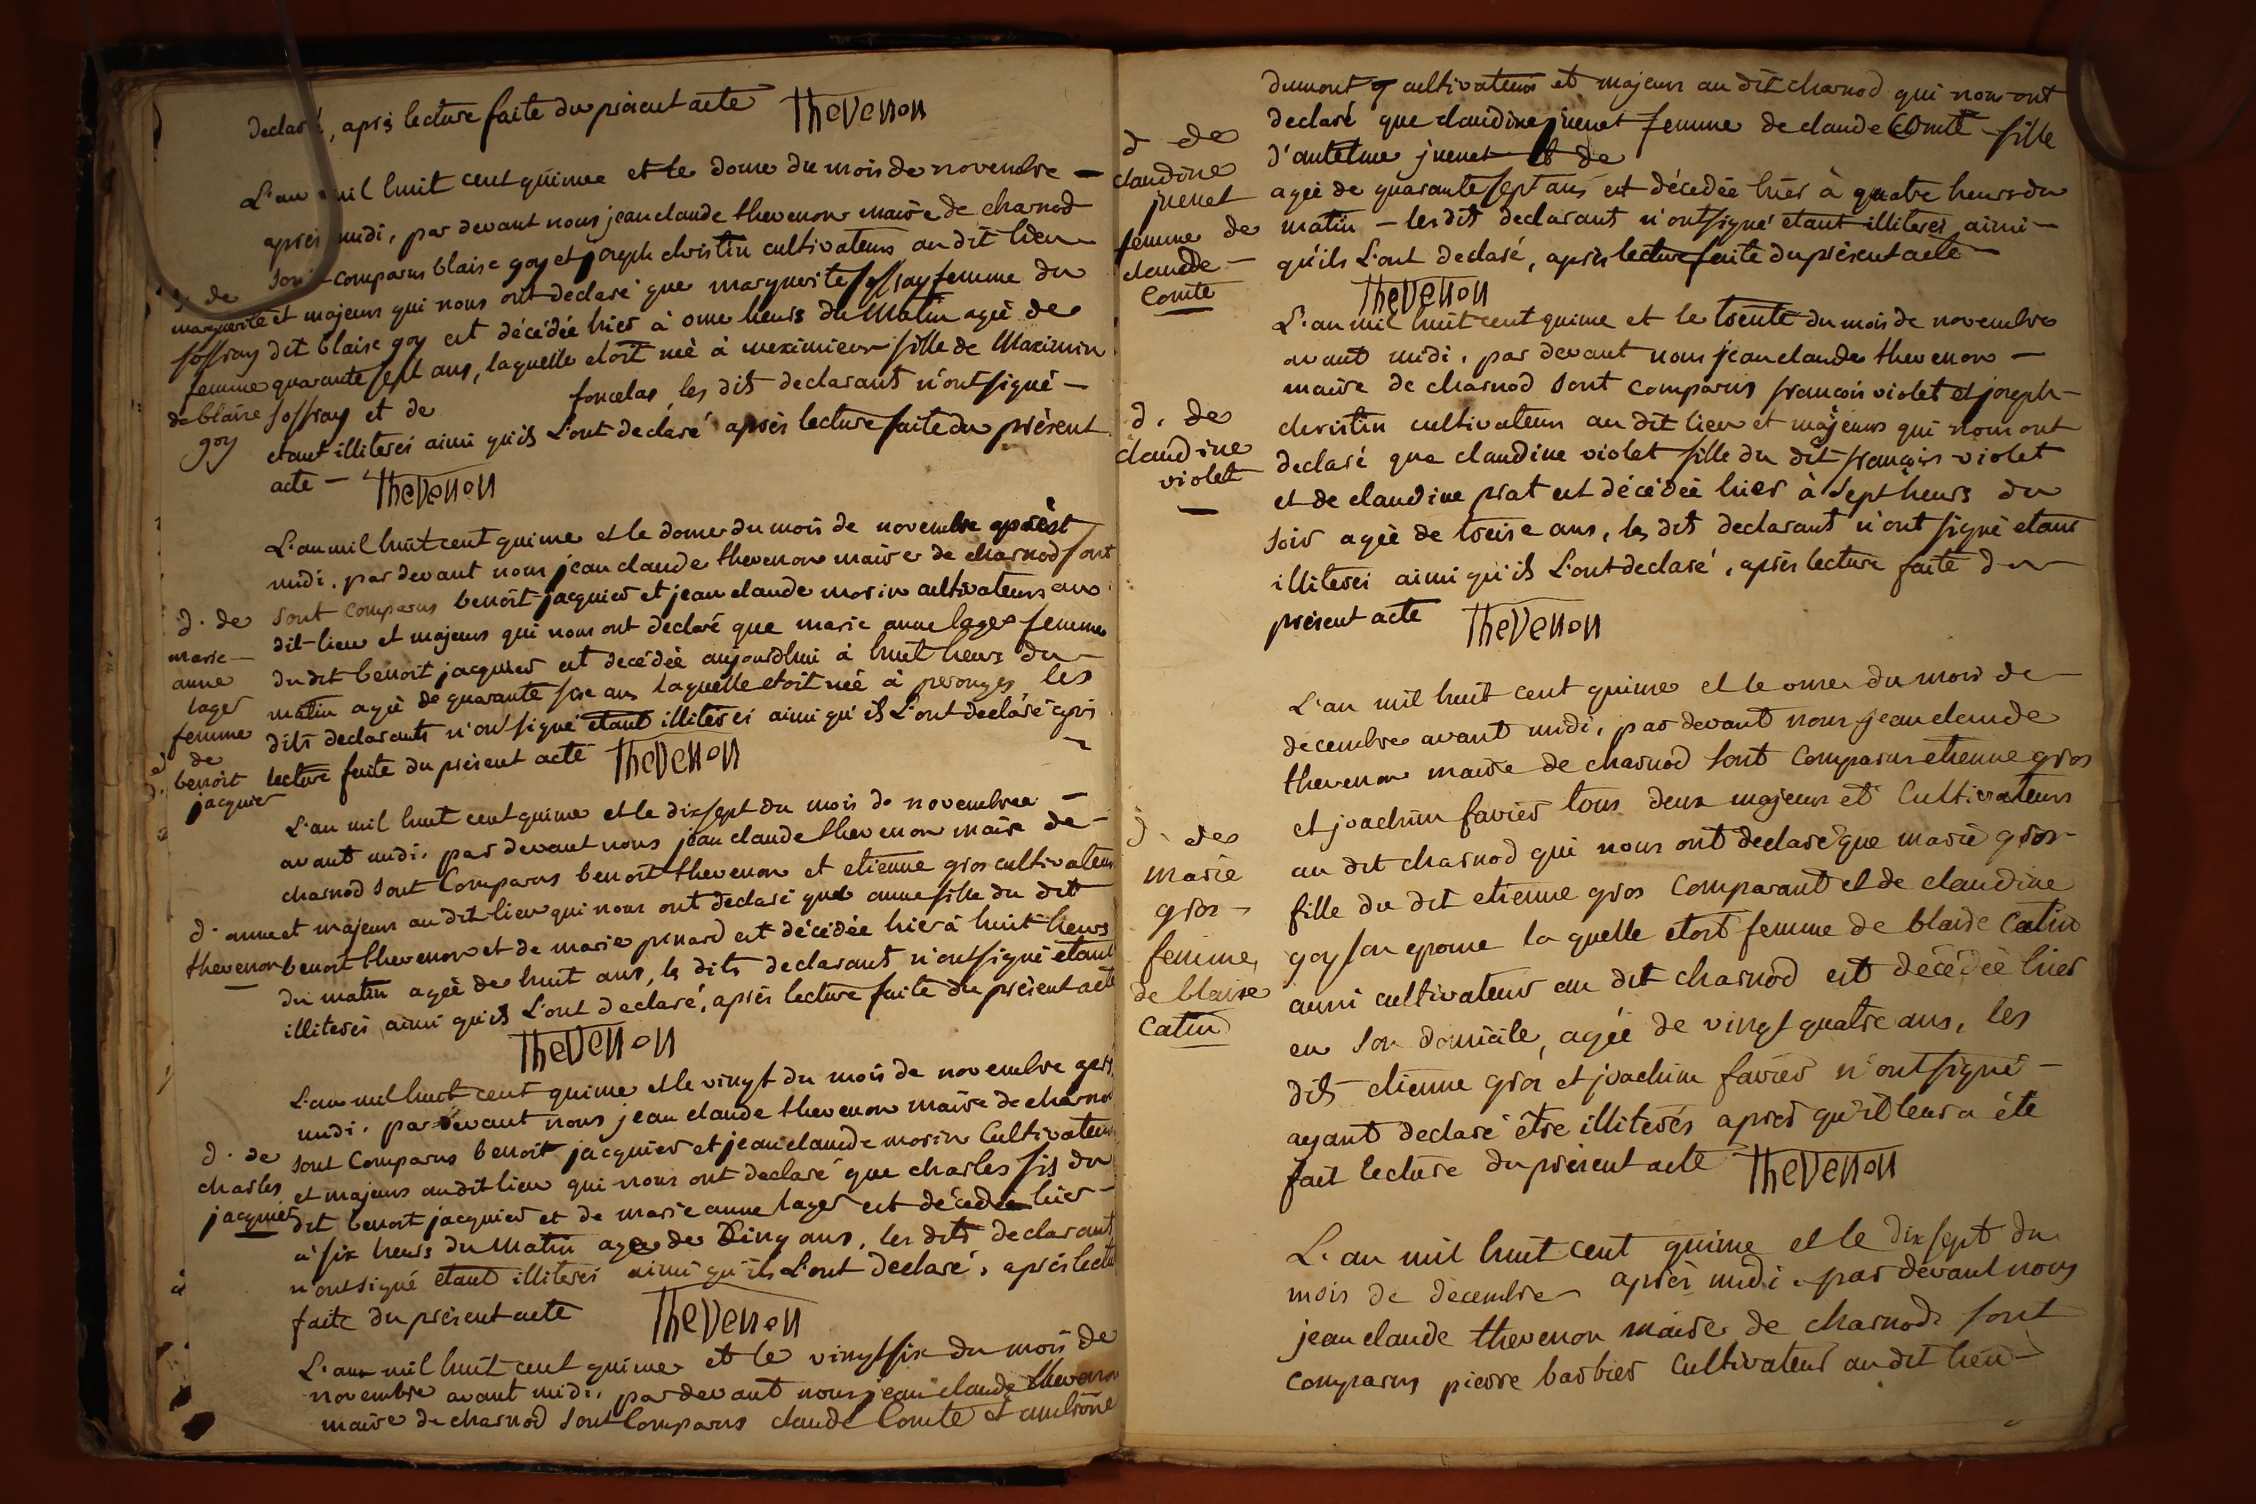 declaré, après lecture faite du présent acte Thevenon
L'an mil huit cent quinze et le douze du mois de novembre
après midi, par devant nous jean claude thevenon maire de charnod
sont comparus blaise goy et joseph christin cultivateurs au dit lieu
d. de
marguerite
soffray
femme
de blaise
goy
et majeurs qui nous ont declaré que marguerite soffray femme du
dit blaise goy est décédée hier à onze heurs du matin agée de
quarante sept ans, laquelle etoit née à meximieux fille de Maximin
soffray et de foncelas, les dits declarants n'ont signé
etant illiterés ainsi qu'ils L'ont declaré après lecture faite du présent
acte – Thevenon
L'an mil huit cent quinze et le douze du mois de novembre après
midi, par devant nous jean claude thevenon maire de charnod sont
sont comparus benoit jacquier et jean claude morin cultivateurs au
d. de
marie
anne
lager
femme
de
benoit
jacquier
dit-lieu et majeurs qui nous ont declaré que marie anne lager femme
du dit benoit jacquier est decédée aujourdhui à huit heurs du
matin agée de quarante six ans laquelle etoit née à perouges les
dits declarants n'ont signé etant illiterés ainsi qu'ils L'ont declaré aprs
lecture faite du présent acte Thevenon
L'an mil huit cent quinze et le dix sept du mois de novembree
avant midi, par devant nous jean claude thevenon maire de
charnod sont comparus benoit thevenon et etienne gros cultivateurs
d. anne
thevenon
et majeurs au dit lieu qui nous ont declaré que anne fille du dit
benoit thevenon et de marie penard est décédée hier à huit heurs
du matin agée de huit ans, ls dits declarants n'ont signé etant
illiterés ainsi qu'ils L'ont declaré, après lecture faite du présent acte
Thevenon
L'an mil huit cent quinze et le vingt du mois de novembre après
midi, par devant nous jean claude thevenon maire de charnod
d. de
charles
jacquier
sont comparus benoit jacquier et jean claude morin Cultivateurs
et majeurs au dit lieu qui nous ont declaré que charles fils du
dit benoit jacquier et de marie anne lager est décédé hier
à six heurs du matin agé de Cinq ans, les dits declarant
n'ont signé etant illiterés ainsi qu'ils L'ont declaré, après lectu
faite du présent acte Thevenon
L'an mil huit cent quinze et le vingt six du mois de
novembre avant midi, par devant nous jean claude thevenon
maire de charnod sont Comparus claude Comte et ambroise
dumont cultivateurs et majeurs au dit charnod qui nous ont
d de
claudine
juenet
femme de
claude
Comte
declaré que claudine juenet femme de claude Comte fille
d'antelme juenet et de
agée de quarante sept ans est décedée hier à quatre heurs du
matin – les dits declarants n'ont signé etant illiterés ainsi
qu'ils L'ont declaré, après lecture faite du présent acte
Thevenon
L'an mil huit cent quinze et le trente du mois de novembre
avant midi, par devant nous jean claude thevenon
maire de charnod sont comparus françois violet et joseph
d. de
claudine
violet
christin cultivateurs au dit lieu et majeurs qui nous ont
declaré que claudine violet fille du dit françois violet
et de claudine prat est décédée hier à sept heurs du
soir agée de treise ans, ls dits declarants n'ont signé etant
illiterés ainsi qu'ils L'ont declaré, après lecture faite du
présent acte Thevenon
L'an mil huit cent quinze et le onze du mois de
decembre avant midi, par devant nous jean claude
thevenon maire de charnod sont comparus etienne gros
et joachim favier tous deux majeurs et Cultivateurs
d. de
marie
gros
femme
de blaise
catin
au dit charnod qui nous ont declaré que marie gros
fille du dit etienne gros comparant et de claudine
goy son epouse la quelle etoit femme de blaise Catin
aussi cultivateur au dit charnod est décédée hier
en son domicile, agée de vingt quatre ans, les
dits etienne gros et joachim favier n'ont signé
ayant declaré être illiterés après qu'il leur a été
fait lecture du présent acte Thevenon
L'an mil huit cent quinze et le dix sept du
mois de decembre après midi par devant nous
jean claude thevenon maire de charnod sont
comparus pierre barbier Cultivateur au dit lieu